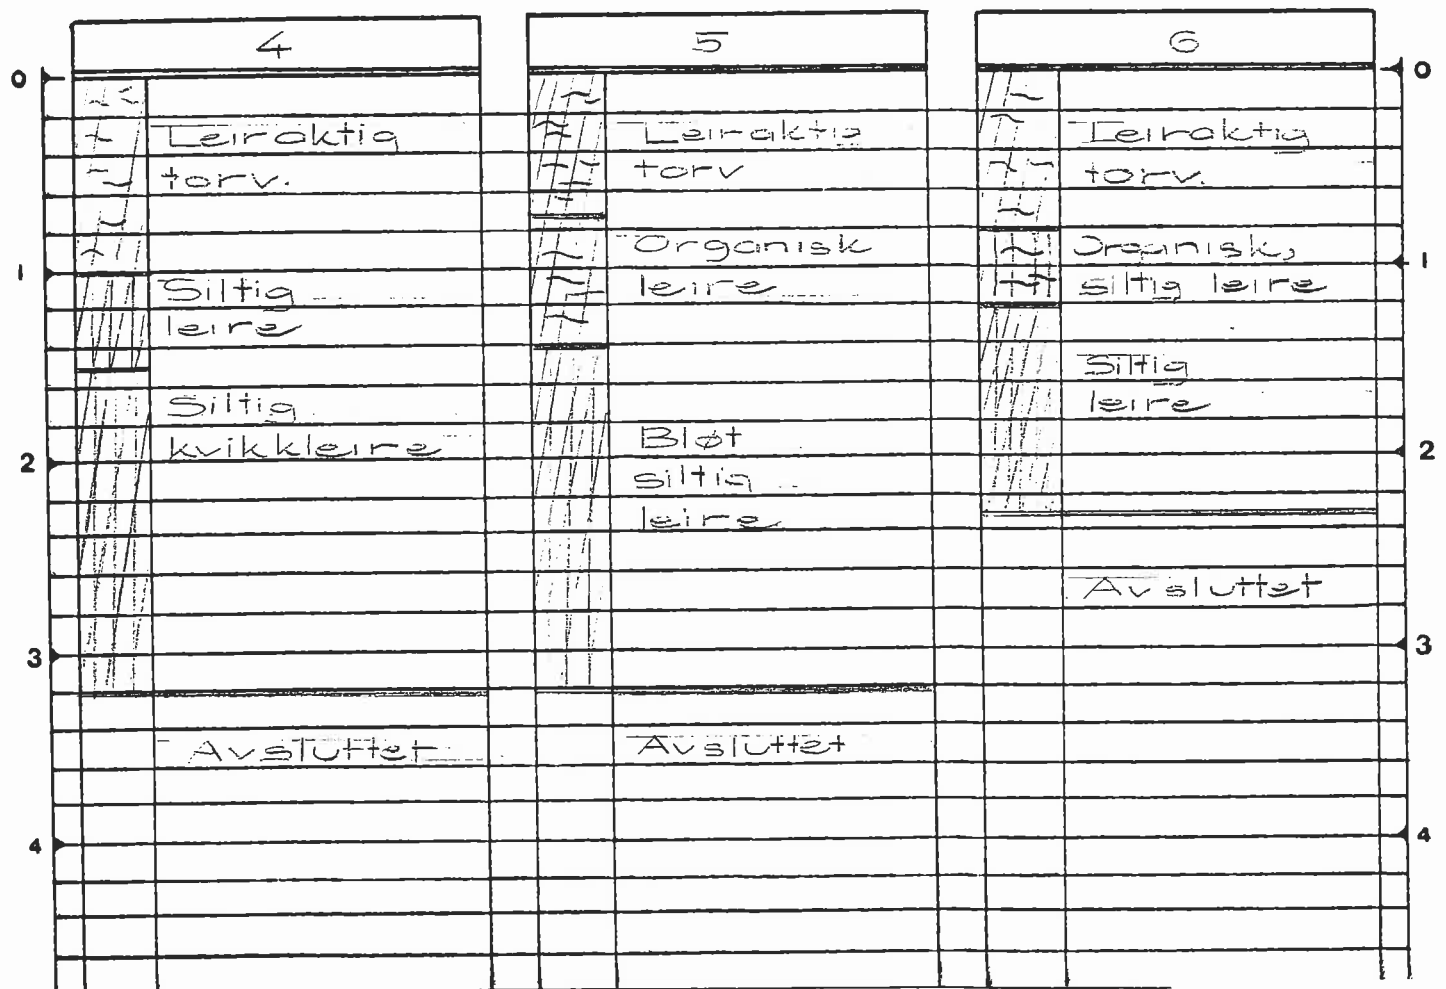 4
5
6
0
1
2
3
4
Leiraktig
torv.
Siltig
leire
Siltig
kvikkleire
Avsluttet
Leiraktig
torv
Organisk
leire
Bløt
siltig
leire
Avsluttet
Leiraktig
torv.
Organisk,
siltig leire
Siltig
leire
Avsluttet
0
1
2
3
4